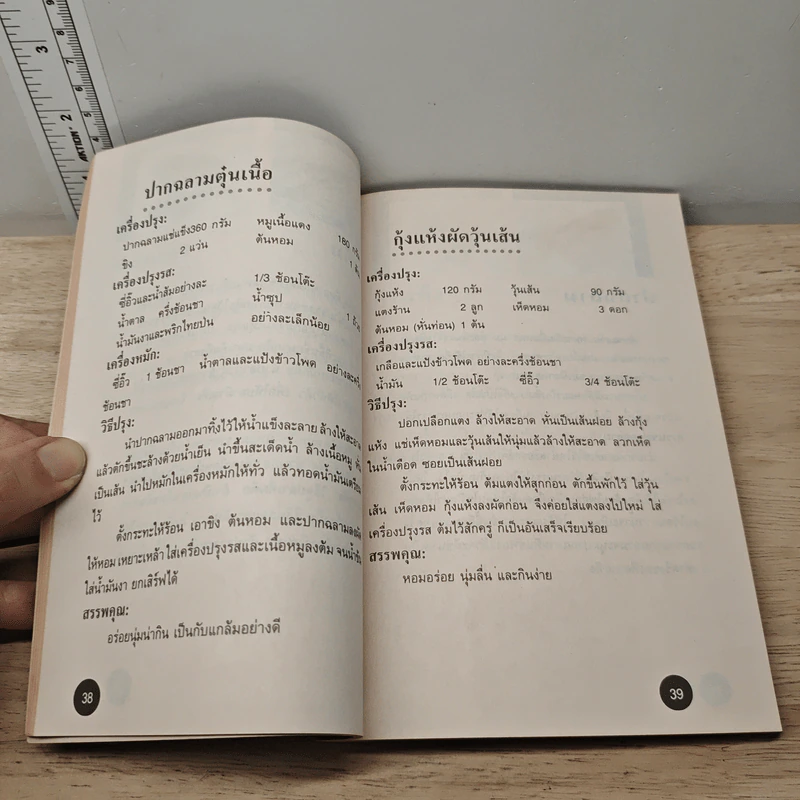 3
2
ACTION
ปากฉลามตุ๋นเนื้อ
เครื่องปรุง:
ปากฉลามแช่แข็ง360 กรัม หมูเนื้อแดง 160
ขิง 2 แว่น ต้นหอม 1
เครื่องปรุงรส:
ซีอิ๊วและน้ำส้มอย่างละ 1/3 ช้อนโต๊ะ
น้ำตาล ครึ่งช้อนชา น้ำซุป 1
น้ำมันงาและพริกไทยป่น อย่างละเล็กน้อย
เครื่องหมัก:
ซีอิ๊ว 1 ช้อนชา น้ำตาลและแป้งข้าวโพด อย่างละครึ่ง
ช้อนชา
วิธีปรุง:
นำปากฉลามออกมาทิ้งไว้ให้น้ำแข็งละลาย ล้างให้สะอาด
แล้วตักขึ้นชะล้างด้วยน้ำเย็น นำขึ้นสะเด็ดน้ำ ล้างเนื้อหมู หั่น
เป็นเส้น นำไปหมักในเครื่องหมักให้ทั่ว แล้วทอดน้ำมันเตรียม
ไว้
ตั้งกระทะให้ร้อน เอาขิง ต้นหอม และปากฉลามลงผัด
ให้หอม เหยาะเหล้า ใส่เครื่องปรุงรสและเนื้อหมูลงต้ม จนน้ำข้น
ใส่น้ำมันงา ยกเสิร์ฟได้
สรรพคุณ:
อร่อยนุ่มน่ากิน เป็นกับแกล้มอย่างดี
38
กุ้งแห้งผัดวุ้นเส้น
เครื่องปรุง:
กุ้งแห้ง 120 กรัม วุ้นเส้น 90 กรัม
แตงร้าน 2 ลูก เห็ดหอม 3 ดอก
ต้นหอม (หั่นท่อน) 1 ต้น
เครื่องปรุงรส:
เกลือและแป้งข้าวโพด อย่างละครึ่งช้อนชา
น้ำมัน 1/2 ช้อนโต๊ะ ซีอิ๊ว 3/4 ช้อนโต๊ะ
วิธีปรุง:
ปอกเปลือกแตง ล้างให้สะอาด หั่นเป็นเส้นฝอย ล้างกุ้ง
แห้ง แช่เห็ดหอมและวุ้นเส้นให้นุ่มแล้วล้างให้สะอาด ลวกเห็ด
ในน้ำเดือด ซอยเป็นเส้นฝอย
ตั้งกระทะให้ร้อน ต้มแตงให้สุกก่อน ตักขึ้นพักไว้ ใส่วุ้น
เส้น เห็ดหอม กุ้งแห้งลงผัดก่อน จึงค่อยใส่แตงลงไปใหม่ ใส่
เครื่องปรุงรส ต้มไว้สักครู่ ก็เป็นอันเสร็จเรียบร้อย
สรรพคุณ:
หอมอร่อย นุ่มลื่น และกินง่าย
39